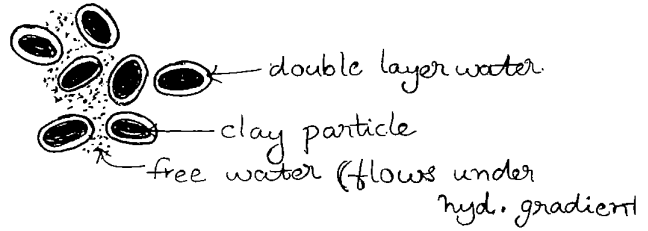 double layer water.
clay particle
free water (flows under
hyd. gradient